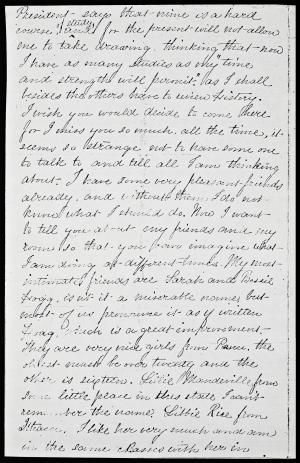 President - says that mine is a hard
course of study and for the present will not allow
me to take drawing, thinking that now
I have as many studies as my "time
and strength will permit", as I shall
besides the others have to review history.
I wish you would decide to come here
for I miss you so much all the time, it
seems so strange not to have some one
to talk to and tell all I am thinking
about. I have some very pleasant friends
already, and without them I do not
know what I should do. Now I want
to tell you about my friends and my
room so that you can imagine what
I am doing at different times. My most
intimate friends are Sarah and
Frogg, isn't it a miserable name, but
most of us pronounce it as if written
Frog which is a great improvement.
They are very nice girls from Penn. the
oldest must be over twenty and the
other is eighteen. Libbie Mandeville from
some little place in this state I can't
remember the name. Libbie Rice from
Ithaca. I like her very much and am
in the same classes with her in